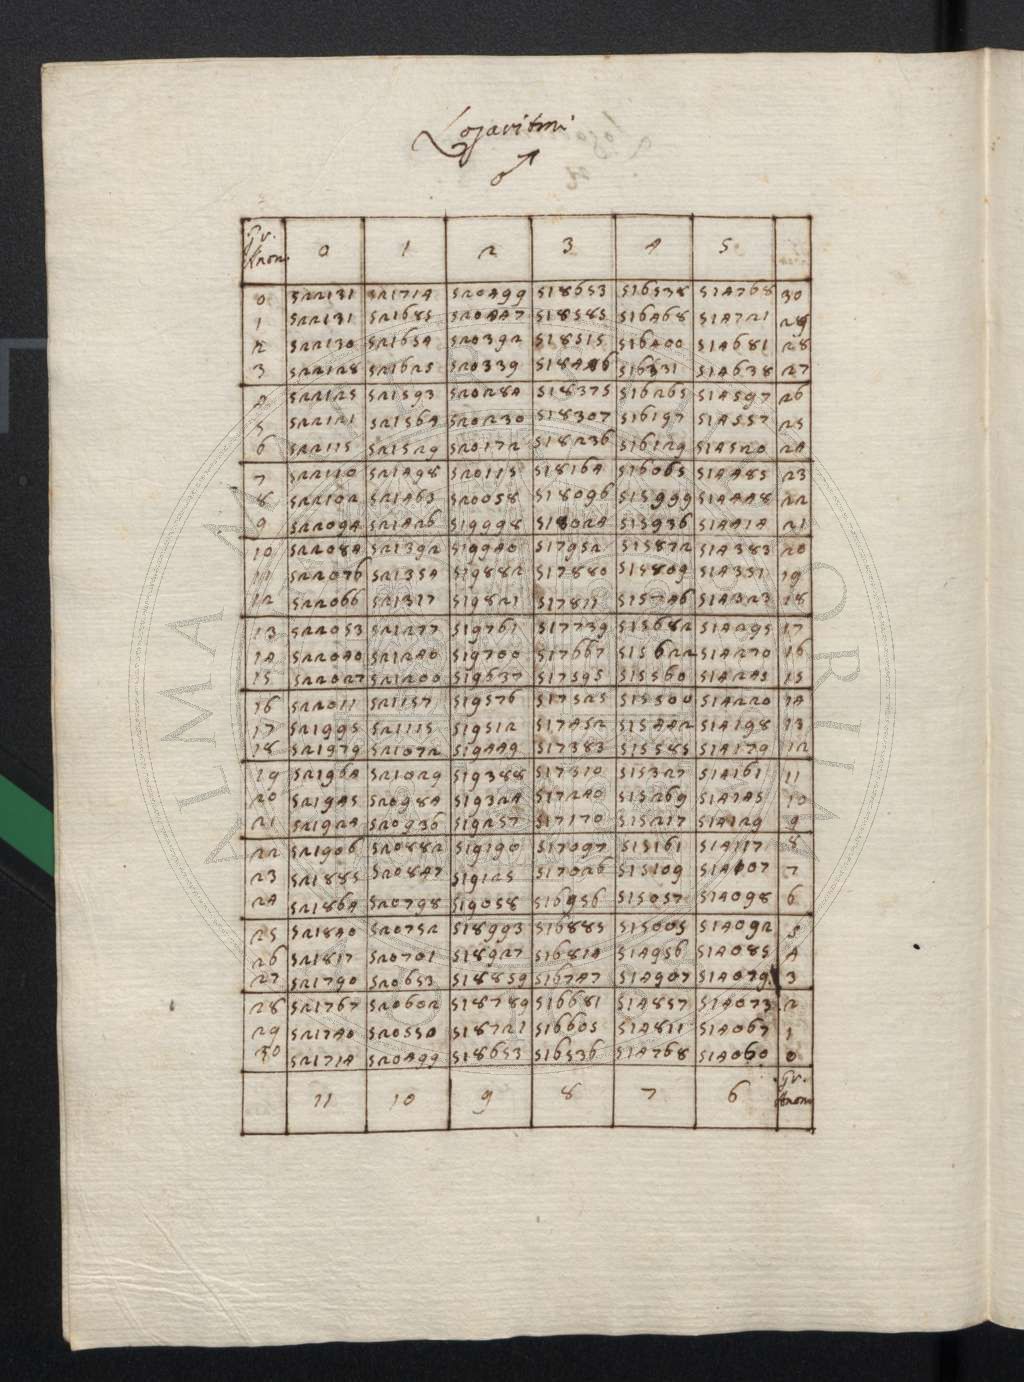 Logaritmi
♂
Gr. Anom. 0 1 2 3 4 5
0 522131 521714 520499 518653 516538 514768 30
1 522131 521685 520447 518585 516468 514721 29
2 522130 521654 520392 518515 516400 514681 28
3 522128 521625 520339 518446 516331 514638 27
4 522125 521593 520284 518375 516265 514597 26
5 522121 521564 520230 518307 516197 514557 25
6 522115 521529 520172 518236 516129 514520 24
7 522110 521498 520115 518164 516065 514485 23
8 522102 521463 520058 518096 515999 514448 22
9 522094 521426 519998 518024 515936 514414 21
10 522084 521392 519940 517952 515872 514383 20
11 522076 521354 519882 517880 515809 514351 19
12 522066 521317 519821 517811 515746 514323 18
13 522053 521277 519761 517739 515682 514295 17
14 522040 521240 519700 517667 515622 514270 16
15 522027 521200 519637 517595 515560 514245 15
16 522011 521157 519576 517525 515500 514220 14
17 521995 521115 519512 517452 515442 514198 13
18 521979 521072 519449 517383 515585 514179 12
19 521964 521029 519388 517310 515327 514161 11
20 521945 520984 519324 517240 515269 514145 10
21 521924 520936 519257 517170 515217 514129 9
22 521906 520882 519190 517097 515161 514117 8
23 521885 520847 519125 517026 515109 514107 7
24 521864 520798 519058 516956 515057 514098 6
25 521840 520752 518993 516885 515005 514092 5
26 521817 520701 518927 516814 514956 514085 4
27 521790 520653 518859 516747 514907 514079 3
28 521767 520602 518789 516681 514857 514073 2
29 521740 520550 518721 516605 514811 514067 1
30 521714 520499 518653 516536 514768 514060 0
11 10 9 8 7 6 Gr. Anom